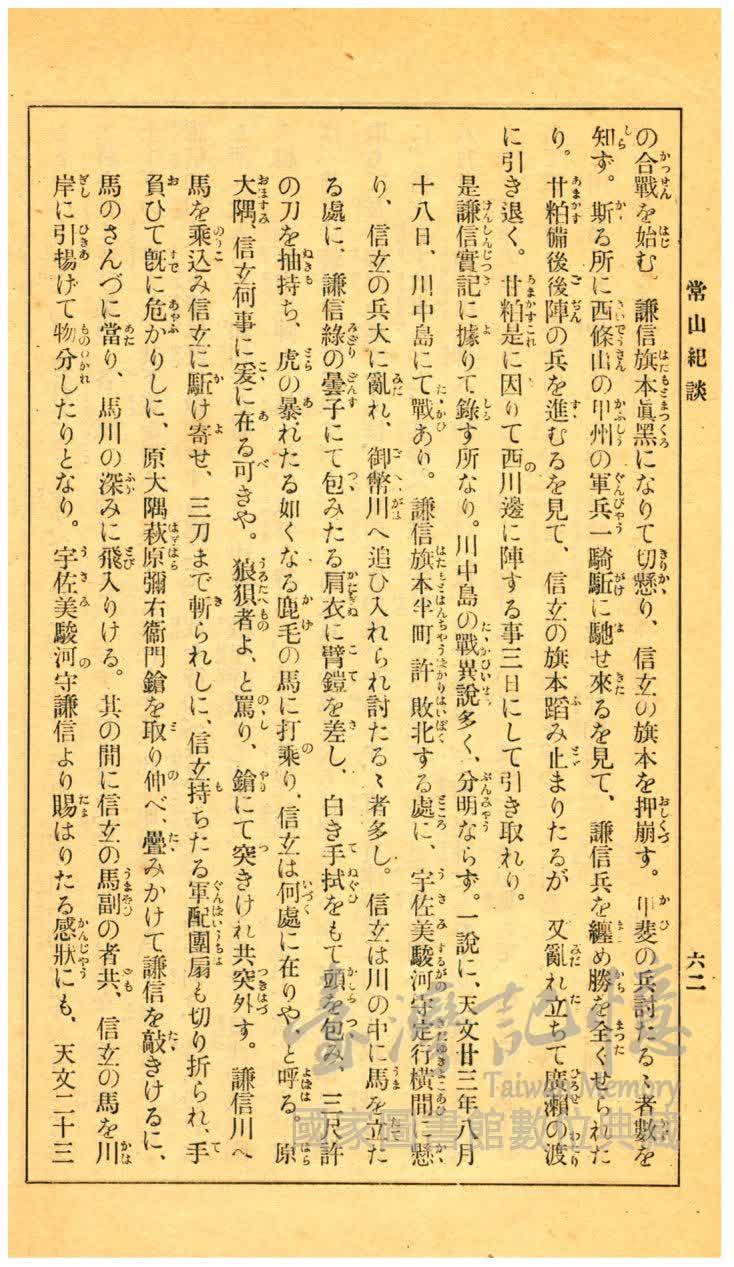 常山紀談
六二
の合戰を始む。謙信旗本眞黑になりて切懸り、信玄の旗本を押崩す。甲斐の兵討たるゝ者數を
知ず。斯る所に西條山の甲州の軍兵一騎駈に馳せ來るを見て、謙信兵を纏め勝を全くせられた
り。甘粕備後後陣の兵を進むるを見て、信玄の旗本蹈み止まりたるが　又亂れ立ちて廣瀨の渡
に引き退く。甘粕是に因りて西川邊に陣する事三日にして引き取れり。
是謙信實記に據りて錄す所なり。川中島の戰異說多く、分明ならず。一說に、天文廿三年八月
十八日、川中島にて戰あり。謙信旗本半町許敗北する處に、宇佐美駿河守定行橫間に懸
り、信玄の兵大に亂れ、御幣川へ追ひ入れられ討たるゝ者多し。信玄は川の中に馬を立た
る處に、謙信綠の曇子にて包みたる肩衣に臂鎧を差し、白き手拭をもて頭を包み、三尺許
の刀を抽持ち、虎の暴れたる如くなる鹿毛の馬に打乘り、信玄は何處に在りや、と呼る。原
大隅、信玄何事に爰に在る可きや。狼狽者よ、と罵り、鎗にて突きけれ共突外す。謙信川へ
馬を乘込み信玄に駈け寄せ、三刀まで斬られしに、信玄持ちたる軍配團扇も切り折られ、手
負ひて旣に危かりしに、原大隅萩原彌右衞門鎗を取り伸べ、疊みかけて謙信を敲きけるに、
馬のさんづに當り、馬川の深みに飛入りける。其の間に信玄の馬副の者共、信玄の馬を川
岸に引揚げて物分したりとなり。宇佐美駿河守謙信より賜はりたる感狀にも、天文二十三
臺灣記憶
Taiwan Memory
國家圖書館數位典藏